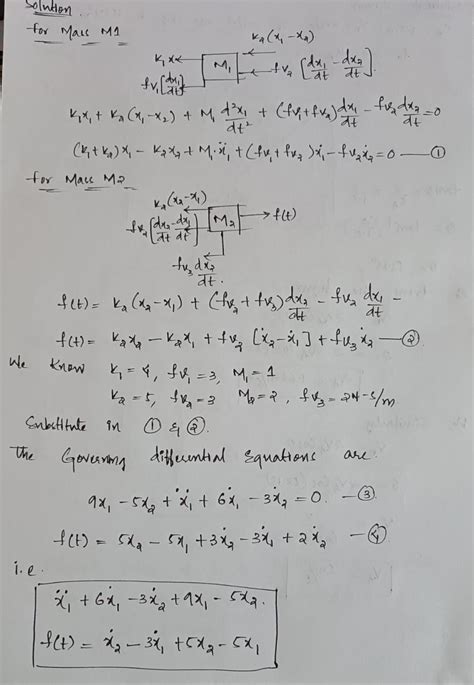 Solution
for Mass M1
K₂(x₁-x₂)
K₁x
M₁
fv₁[dx₁/dt]
fv₂ [dx₁/dt - dx₂/dt]
K₁x₁ + K₂(x₁-x₂) + M₁ d²x₁/dt² + (fv₁+fv₂) dx₁/dt - fv₂ dx₂/dt = 0
(K₁+K₂)x₁ - K₂x₂ + M₁·ẍ₁ + (fv₁+fv₂)ẋ₁ - fv₂ẋ₂ = 0 — ①
for Mass M2
K₂(x₂-x₁)
fv₂[dx₂/dt - dx₁/dt]
M₂
f(t)
fv₃ dx₂/dt
f(t) = K₂(x₂-x₁) + (fv₂+fv₃) dx₂/dt - fv₂ dx₁/dt -
f(t) = K₂x₂ - K₂x₁ + fv₂ [ẋ₂-ẋ₁] + fv₃ẋ₂ — ②
We know K₁ = 4, fv₁ = 3, M₁ = 1
K₂ = 5, fv₂ = 3 M₂ = 2, fv₃ = 2N-s/m
Substitute in ① & ②.
The Governing differential Equations are
9x₁ - 5x₂ + ẍ₁ + 6ẋ₁ - 3ẋ₂ = 0 — ③
f(t) = 5x₂ - 5x₁ + 3ẋ₂ - 3ẋ₁ + 2ẋ₂ — ④
i.e
ẍ₁ + 6ẋ₁ - 3ẋ₂ + 9x₁ - 5x₂.
f(t) = ẋ₂ - 3ẋ₁ + 5x₂ - 5x₁